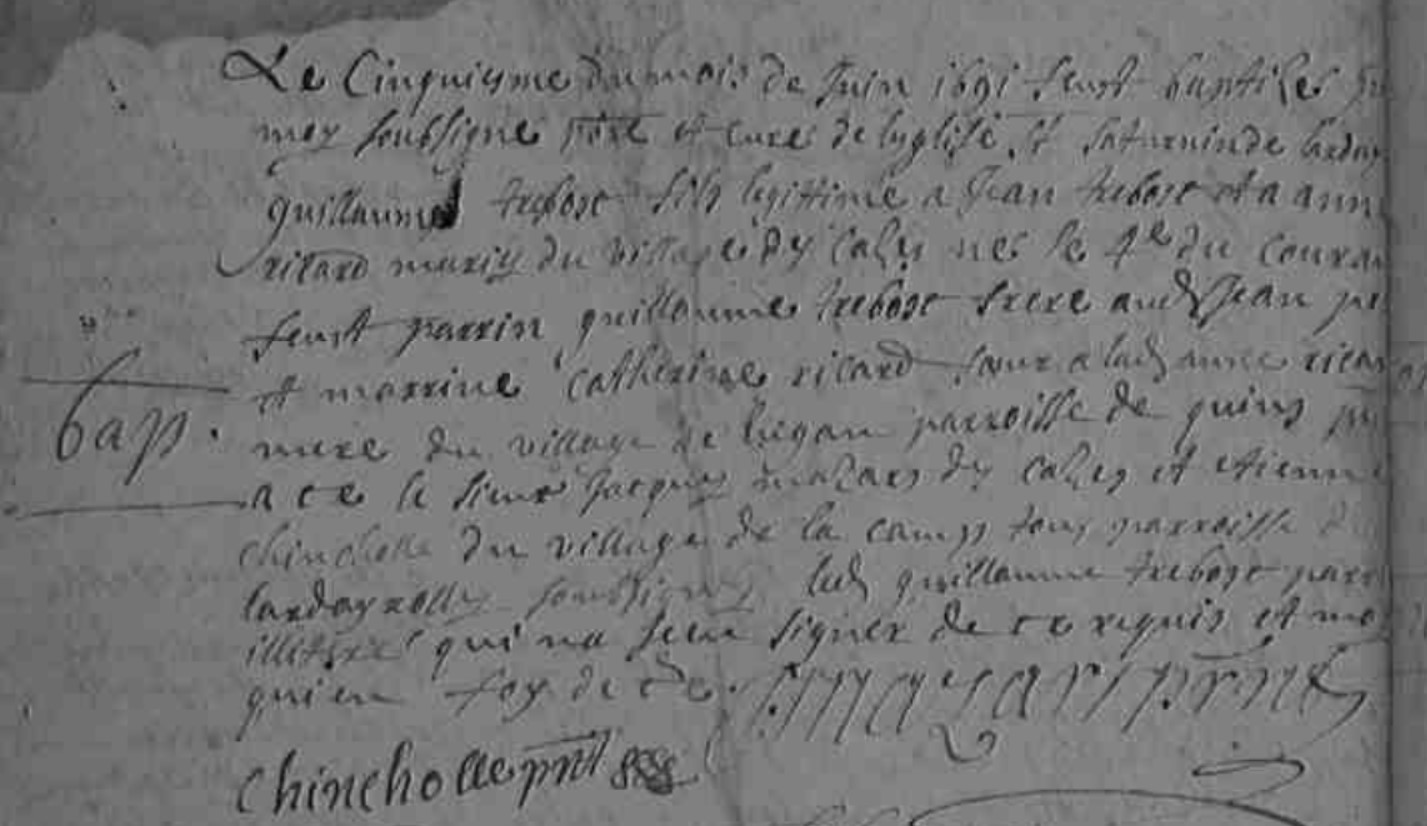 Le Cinquiesme du mois de Juin 1691 feust baptise
moy soubsigne pbre et cure de leglise St saturnin de
guillaume trebosc fils legittime a Jean trebosc et a ann
ricard maries du village dy calsy ne le 4e du coura
feust parrin guillaume trebosc frere aud Jean
et marrine catherine ricard soeur a lad anne rica
mere du village de parroisse de quins
a ce le sieur Jacques mazars dy calsy et etienn
chincholle du village de la camp tous parroisse
soubsignes led guillaume trebosc parr
illitere qui na sceu signer de ce requis et mo
qui en foy de ce. J. mazars prnt
bap.
chincholle prnt